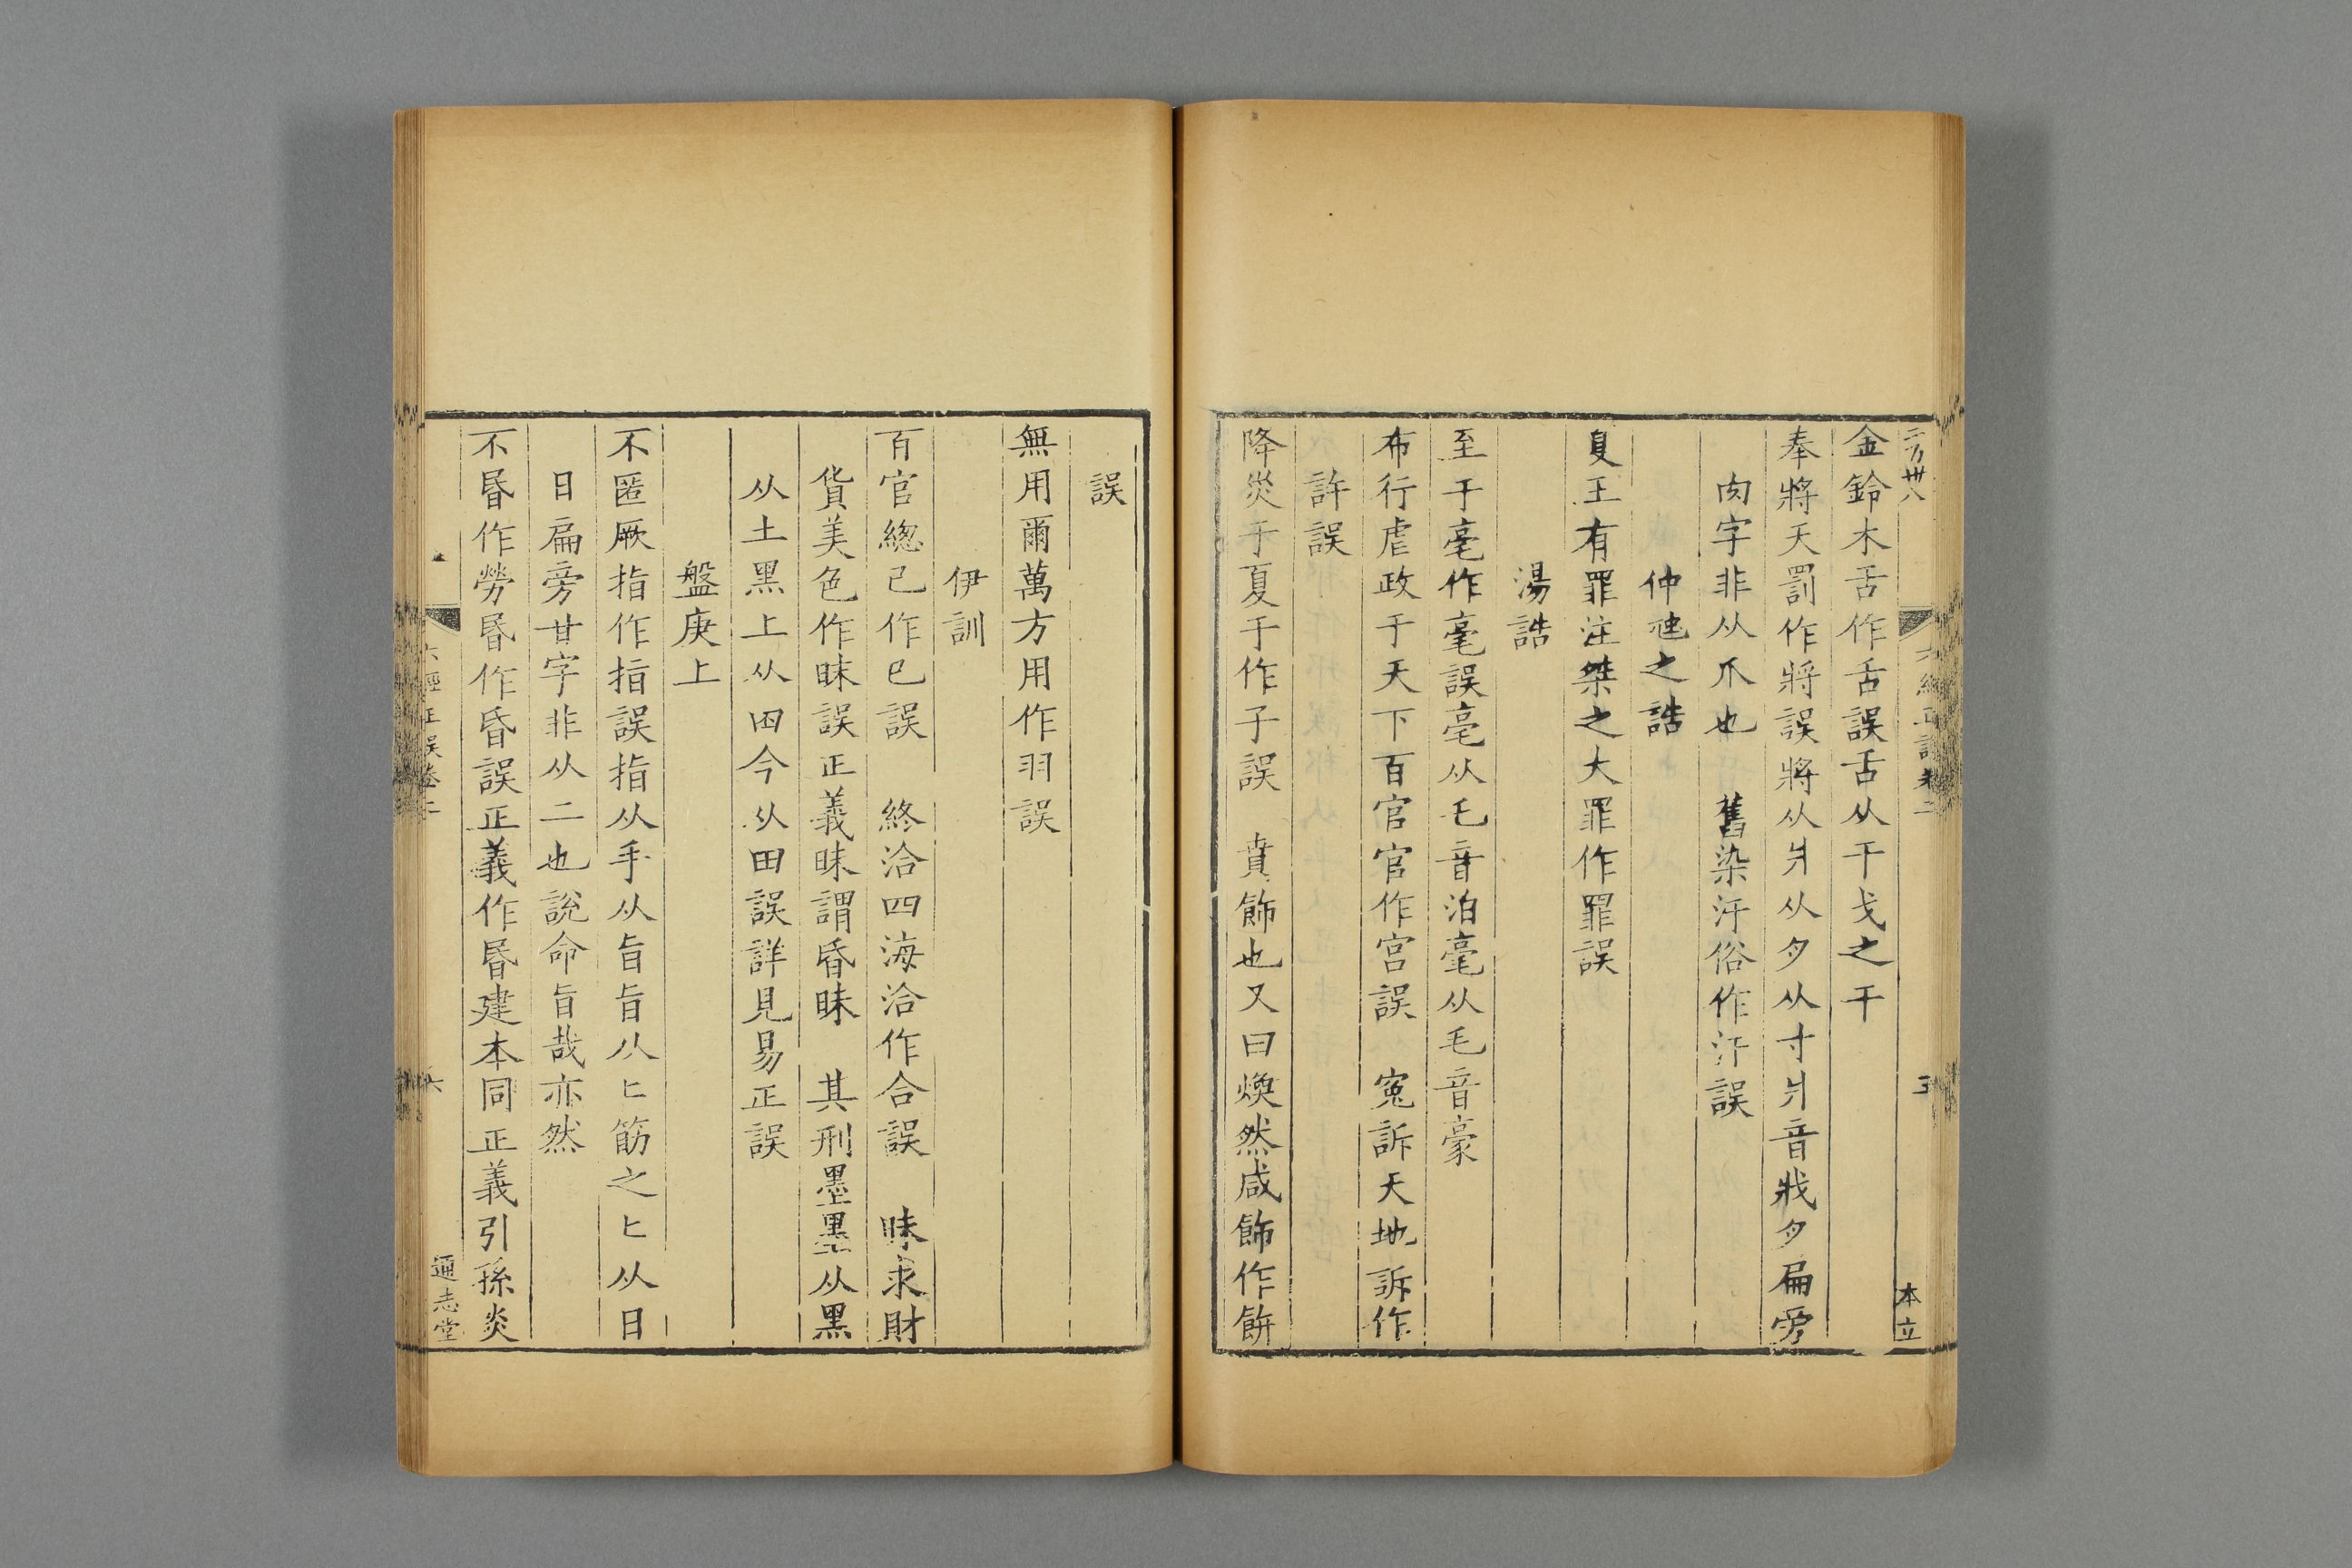 金鈴木舌作舌誤舌从干戈之干
奉將天罰作將誤將从爿从夕从寸爿音戕夕扁旁
肉字非从爪也 舊染汙俗作汙誤
仲虺之誥
夏王有罪注桀之大罪作罪誤
湯誥
至于亳作亳誤亳从乇音泊毫从毛音豪
布行虐政于天下百官官作宫誤 寃訴天地訴作
許誤
降災于夏于作子誤 賁飾也又曰煥然咸飾作餅
六經正誤卷二
五
本立
誤
無用爾萬方用作羽誤
伊訓
百官緫己作巳誤 終洽四海洽作合誤 昧求財
貨美色作眛誤正義昧謂昏昧 其刑墨墨从黑
从土黑上从囱今从田誤詳見易正誤
盤庚上
不匿厥指作指誤指从手从旨旨从匕筯之匕从日
日扁旁甘字非从二也說命旨哉亦然
不昬作勞昬作昏誤正義作昬建本同正義引孫炎
六經正誤卷二
六
通志堂